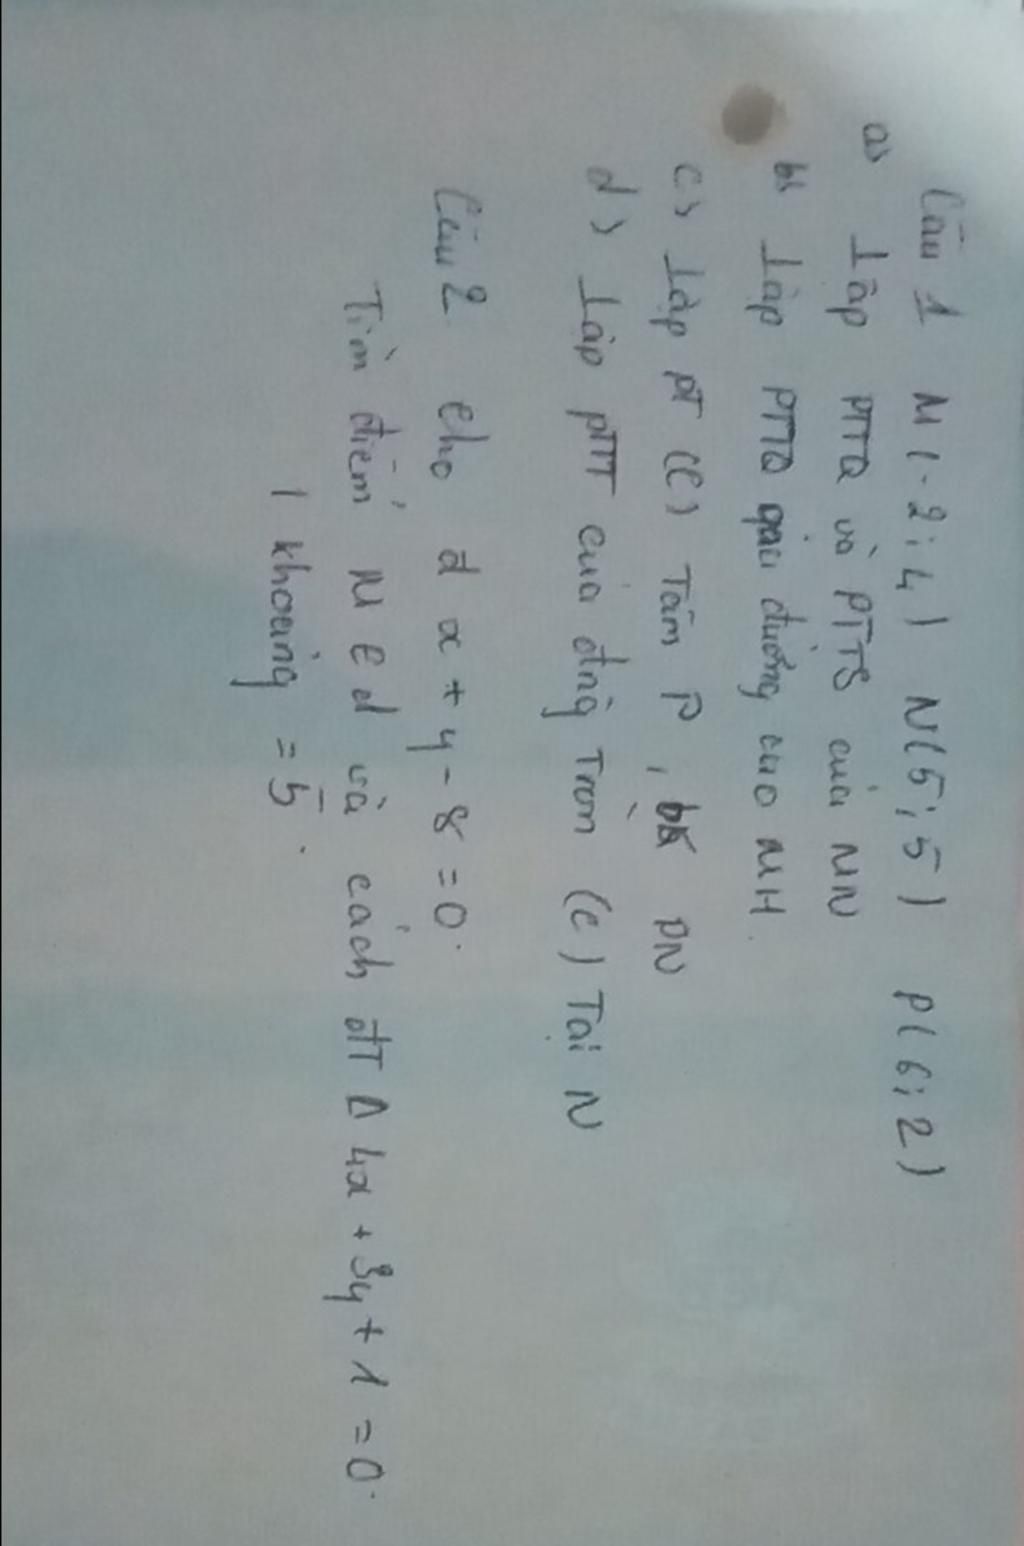 Câu 1 M(-2;4) N(5;5) P(6;2)
a) Lập PTTQ và PTTS của MN
b) Lập PTTQ của đường cao MH.
c) Lập PT (C) Tâm P, bk PN
d) Lập PTTT của đường Tròn (C) Tại N
Câu 2 Cho d x + y - 8 = 0.
Tìm điểm M ∈ d và cách đtT Δ 4x + 3y + 1 = 0.
1 khoảng = 5.